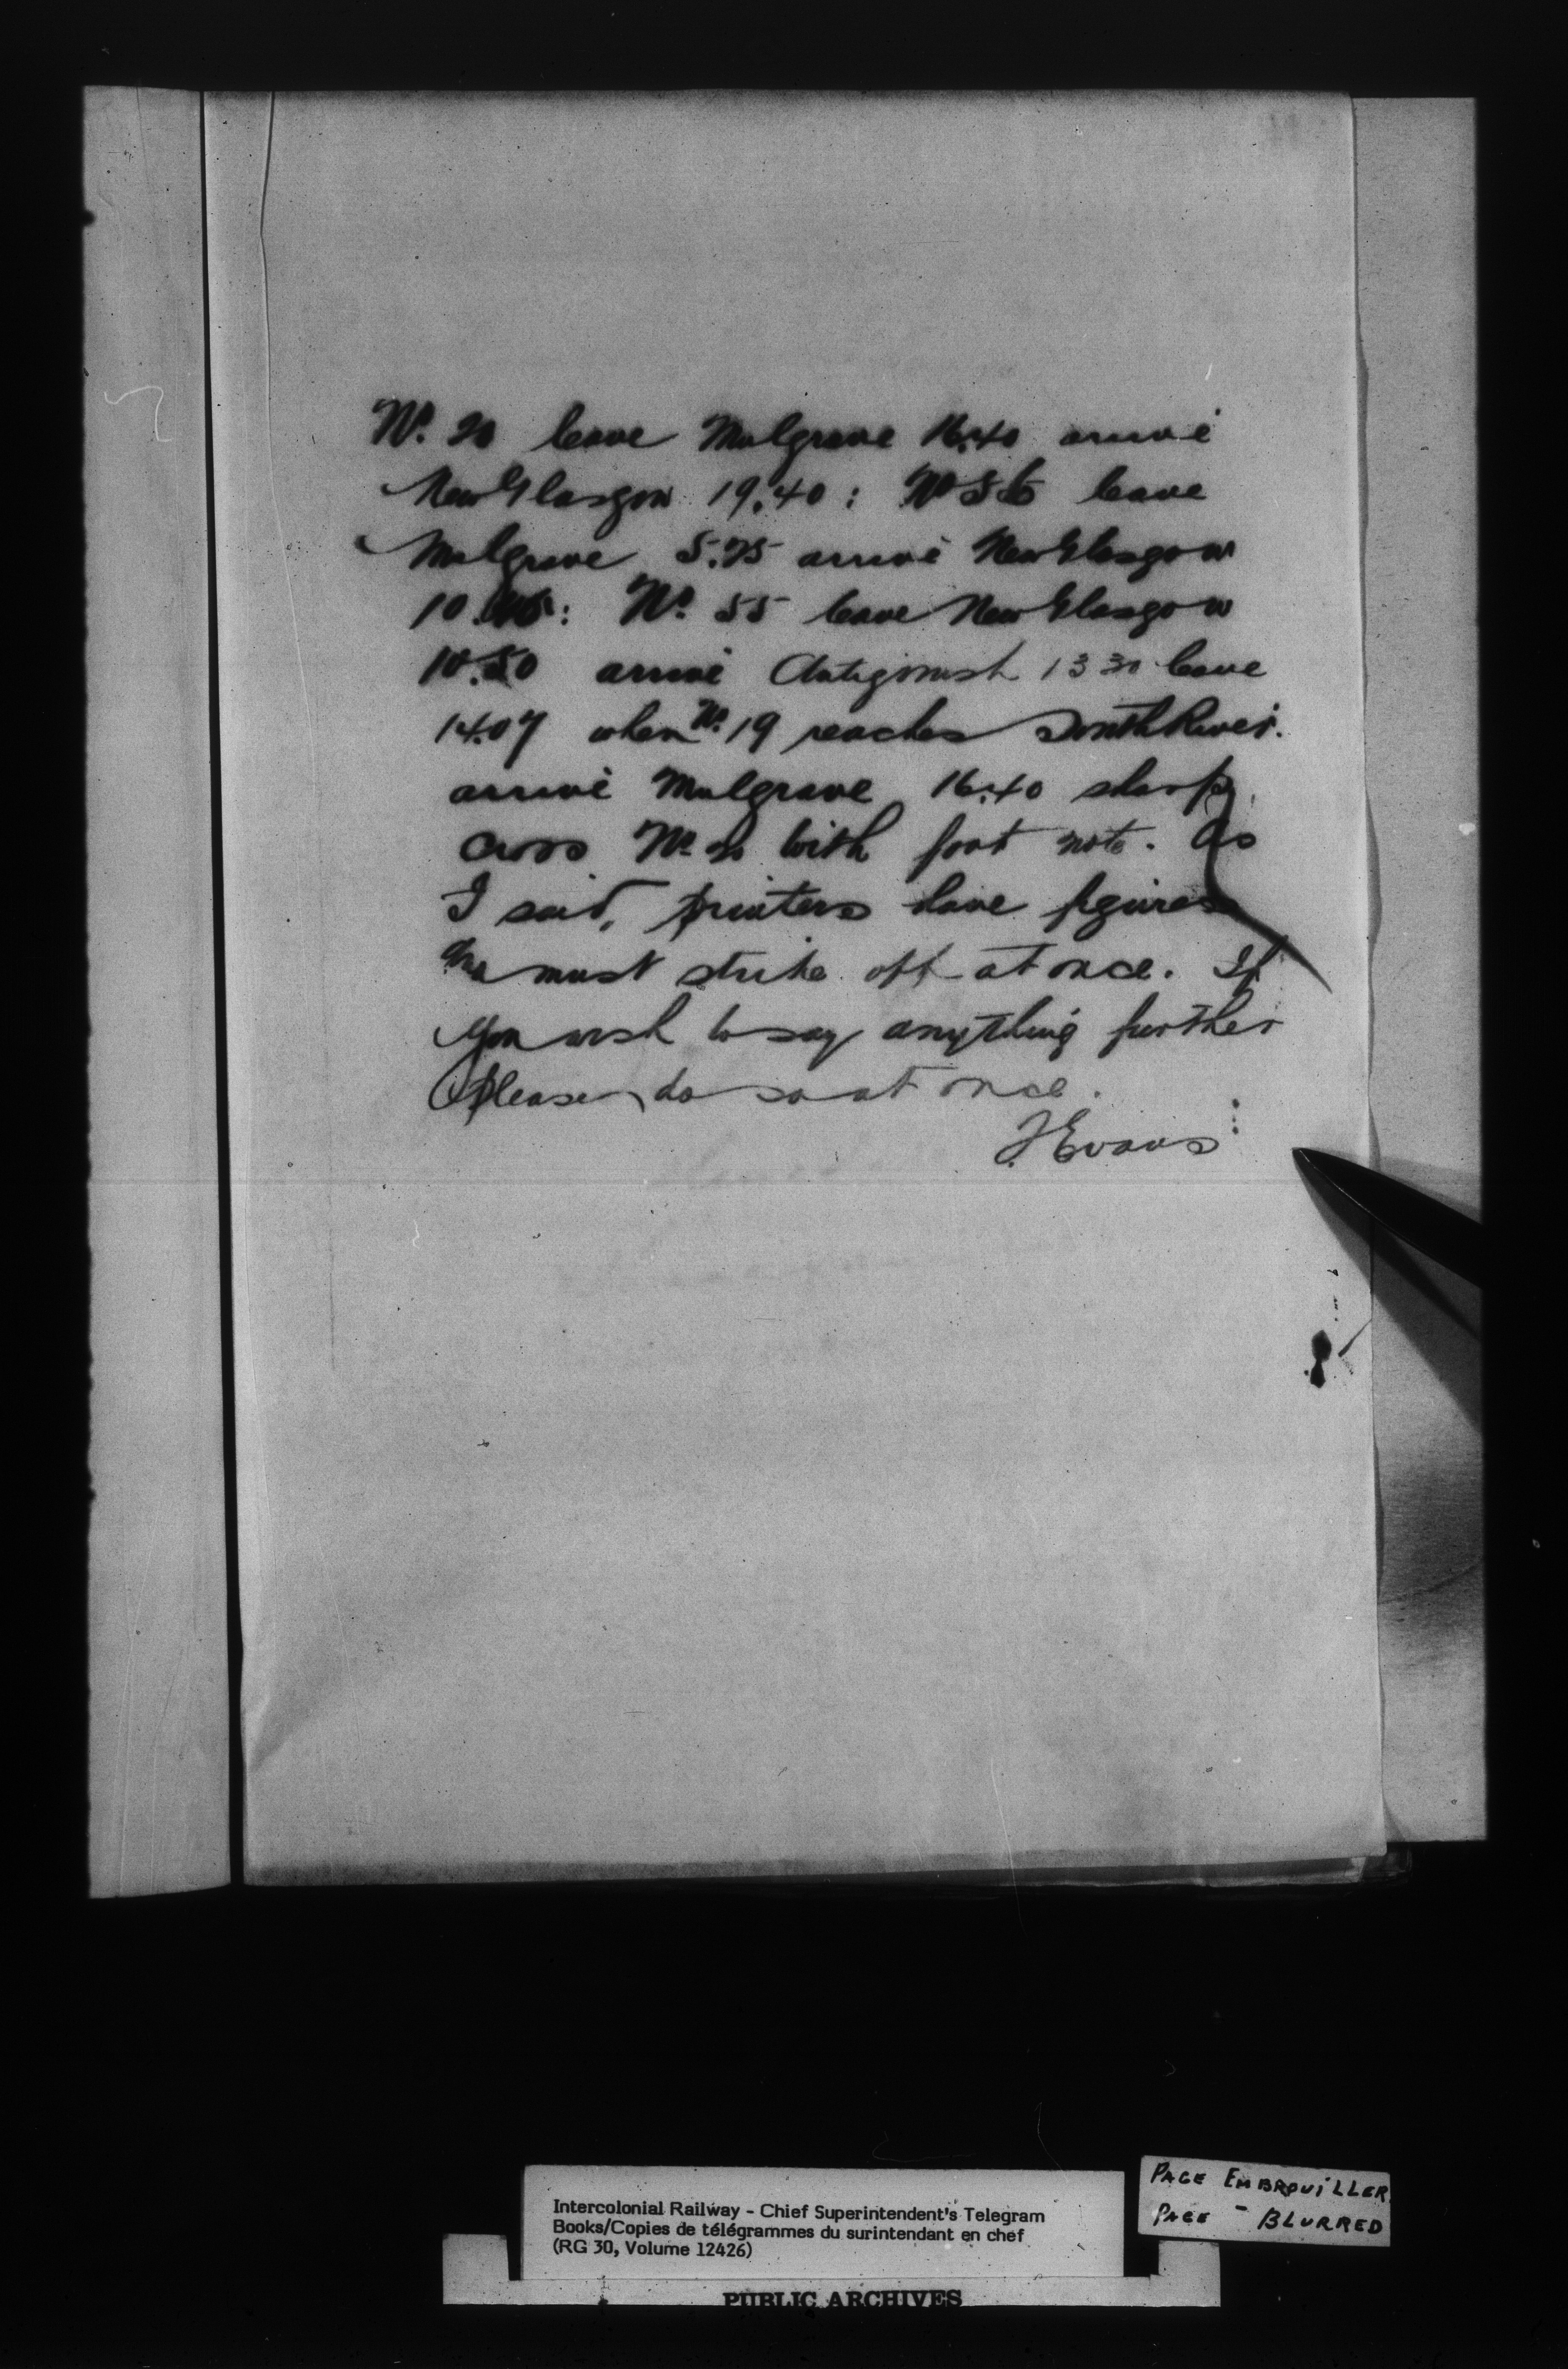 No. 20 leave Mulgrave 16.40 arrive
New Glasgow 19.40: No 56 leave
Mulgrave 5.25 arrive New Glasgow
10. : No. 55 leave New Glasgow
10.50 arrive Antigonish 13 30 leave
14.07 when No. 19 reaches South River.
arrive Mulgrave 16.40 sharp
cross No 20 with foot note. As
I said, printers have figures
and must strike off at once. If
you wish to say anything further
please do so at once.
J Evans
Intercolonial Railway - Chief Superintendent's Telegram
Books/Copies de télégrammes du surintendant en chef
(RG 30, Volume 12426)
PUBLIC ARCHIVES
PAGE EMBROUILLER
PAGE - BLURRED